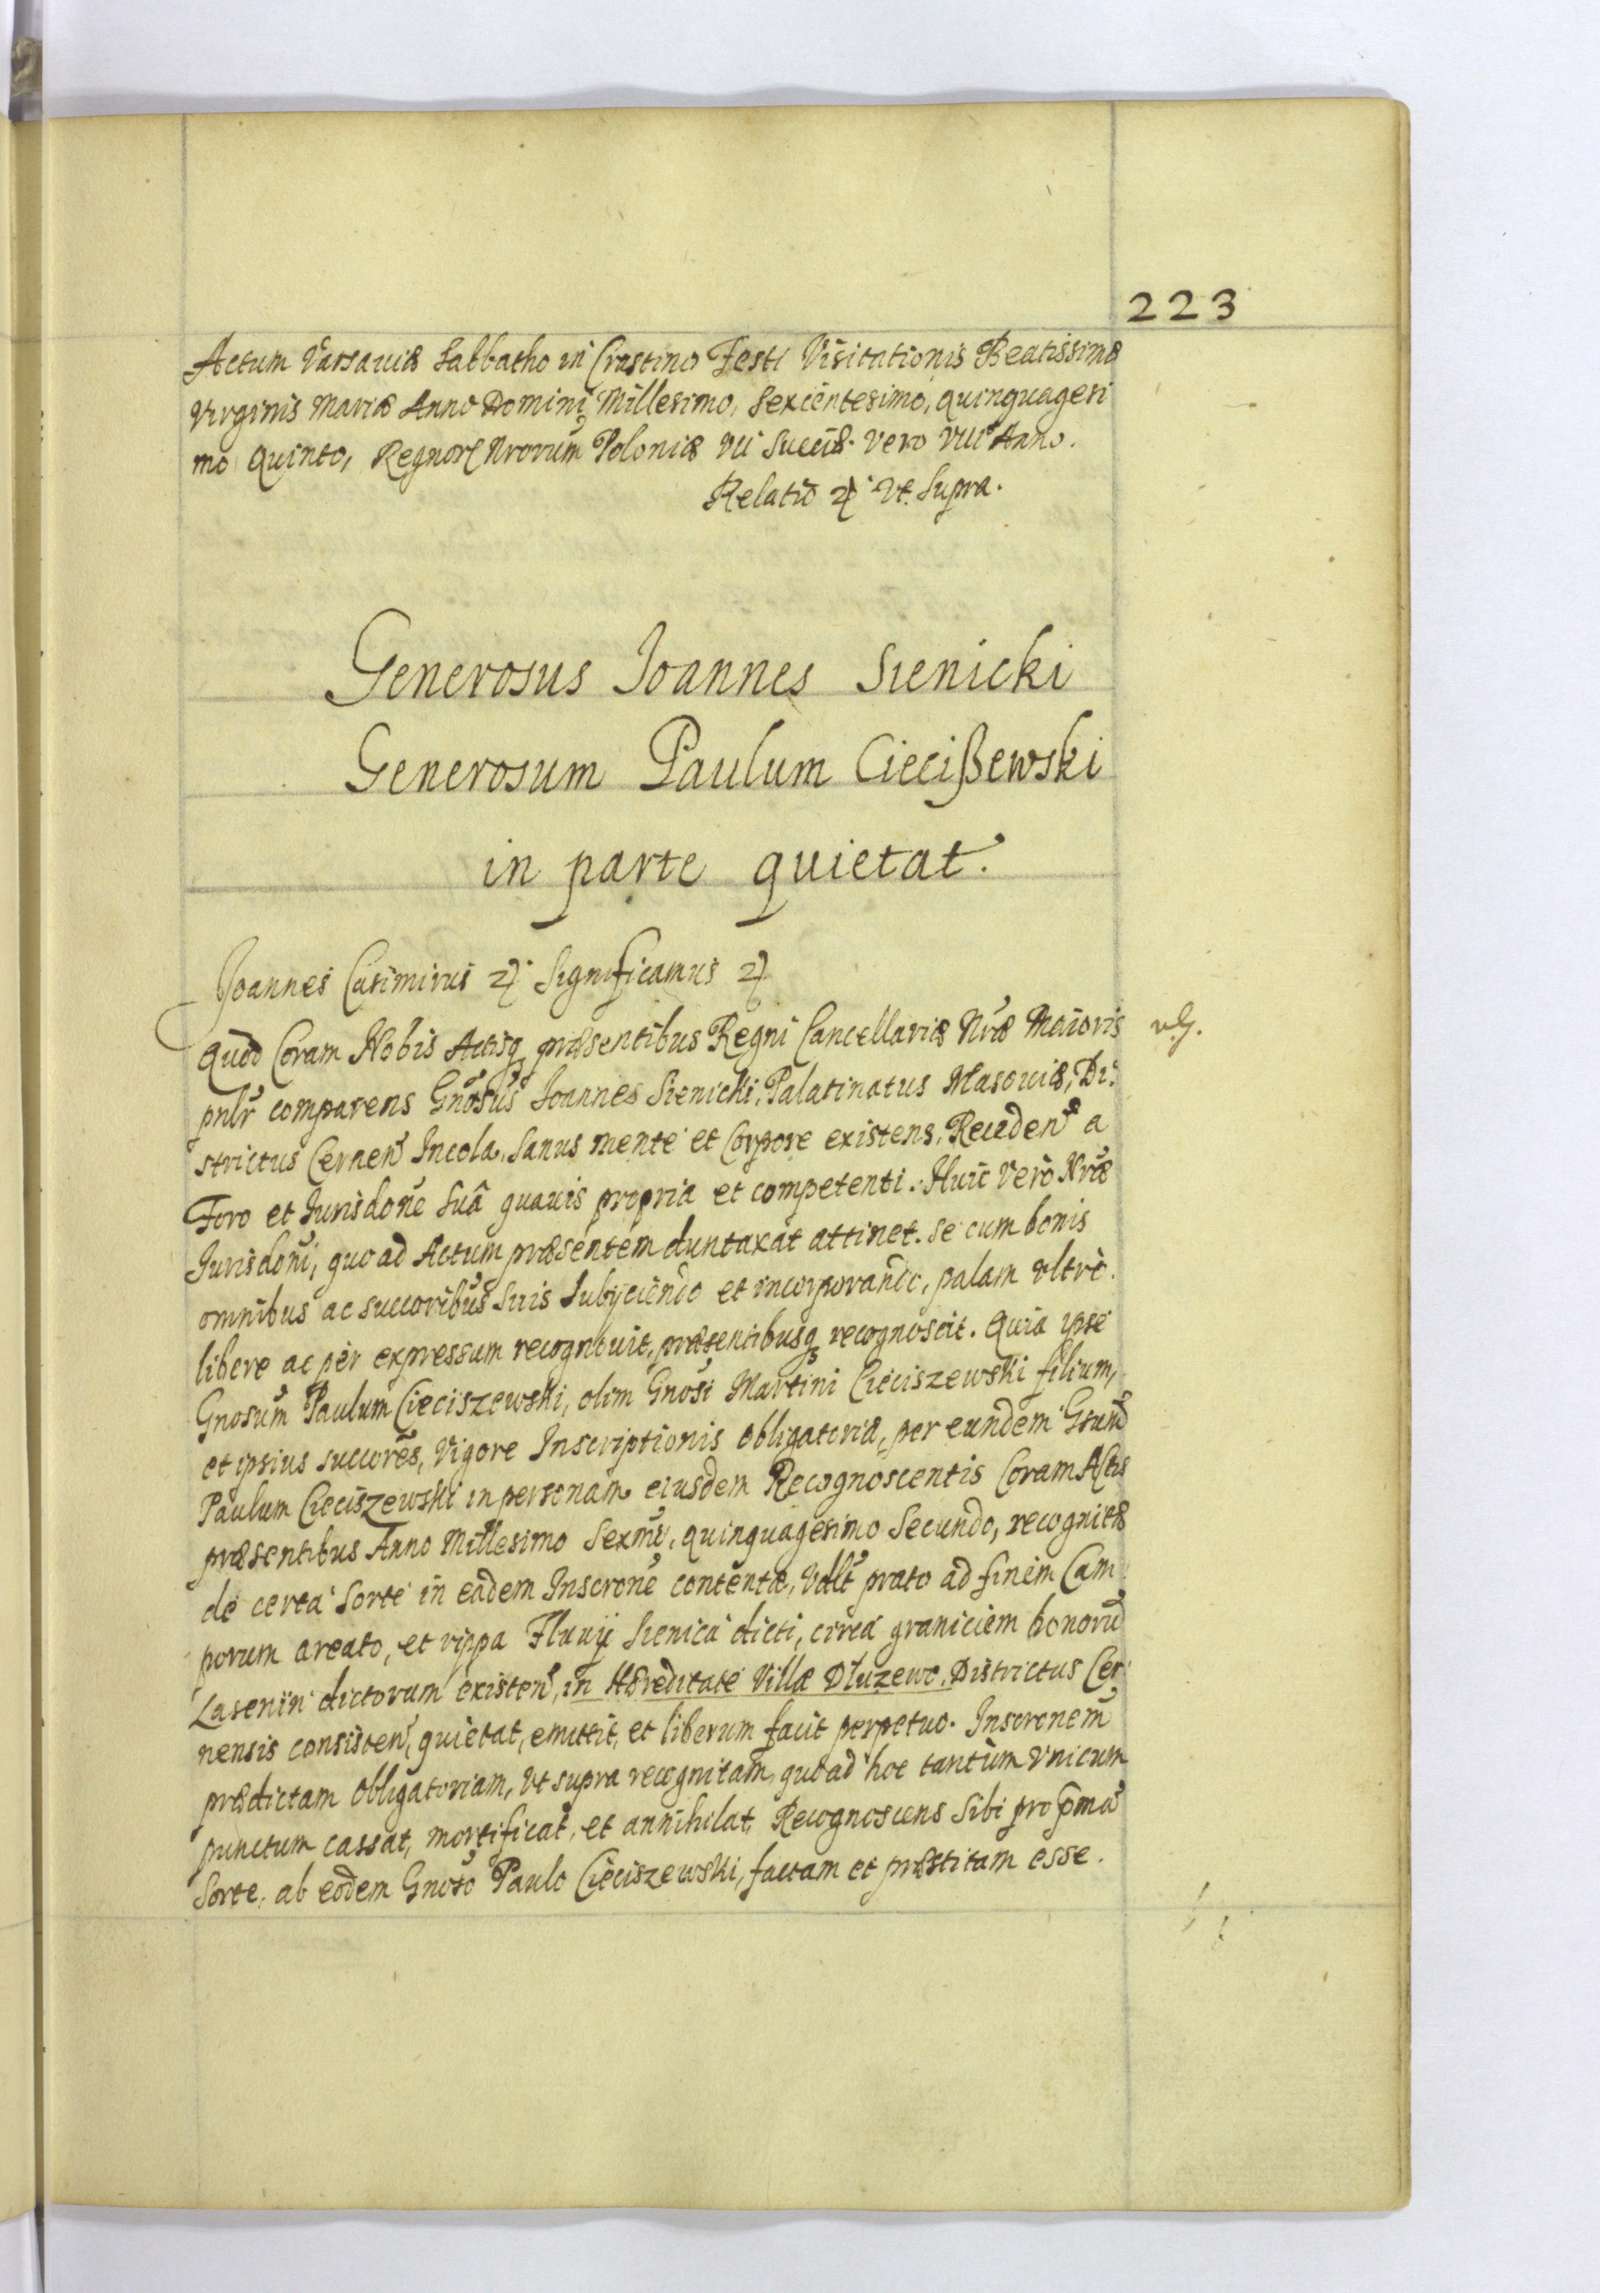 223
Actum Varsaviæ Sabbatho in Crastino Festi Visitationis Beatissimæ
Virginis Mariæ Anno Domini Millesimo, Sexcentesimo, quinquagesi
mo quinto, Regnor Nrorum Poloniæ VII Sueciæ vero VIII Anno.
Relatio ut supra.
Generosus Joannes Sienicki
Generosum Paulum Ciecißewski
in parte quietat.
Joannes Casimirus Significamus
Quod Coram Nobis Actisq præsentibus Regni Cancellariæ Nræ Maioris
pnlr comparens Gnosus Joannes Sienicki, Palatinatus Masoviæ, Di:
strictus Cernen Incola, Sanus mente et Corpore existens, Receden a
Foro et Jurisdone Suâ quavis propria et competenti. Huic vero Nræ
Jurisdoni, quo ad Actum præsentem duntaxat attinet. Se cum bonis
omnibus ac succoribus suis Subijciendo et incorporando, palam ultro.
libere ac per expressum recognovit, præsentibusq recognoscit. Quia ipse
Gnosum Paulum Cieciszewski, olim Gnosi Martini Cieciszewski filium,
et ipsius succores, Vigore Inscriptionis obligatoriæ, per eundem Gsum
Paulum Cieciszewski in personam eiusdem Recognoscentis Coram Actis
præsentibus Anno Millesimo Sexmo, quinquagesimo Secundo, recognitæ
de certa Sorte in eadem Inscrone contentæ, Vdlt prato ad finem Cam
porum areato, et rippa Fluvij Sienica dicti, circa graniciem bonorum
Lasenin dictorum existen, in Hæreditate Villæ Dluzewo, Districtus Cer
nensis consisten, quietat, emittit, et liberum facit perpetuo. Inscronem
prædictam obligatoriam, ut supra recognitam, quo ad hoc tantùm unicum
punctum cassat, mortificat, et annihilat, Recognoscens Sibi pro
Sorte, ab eodem Gnoso Paulo Cieciszewski, factam et præstitam esse.